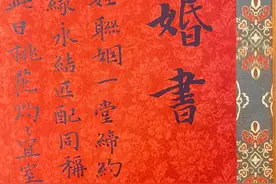 婚書
姓聯姻一堂締約
緣永結匹配同稱
此日桃花灼灼宜室